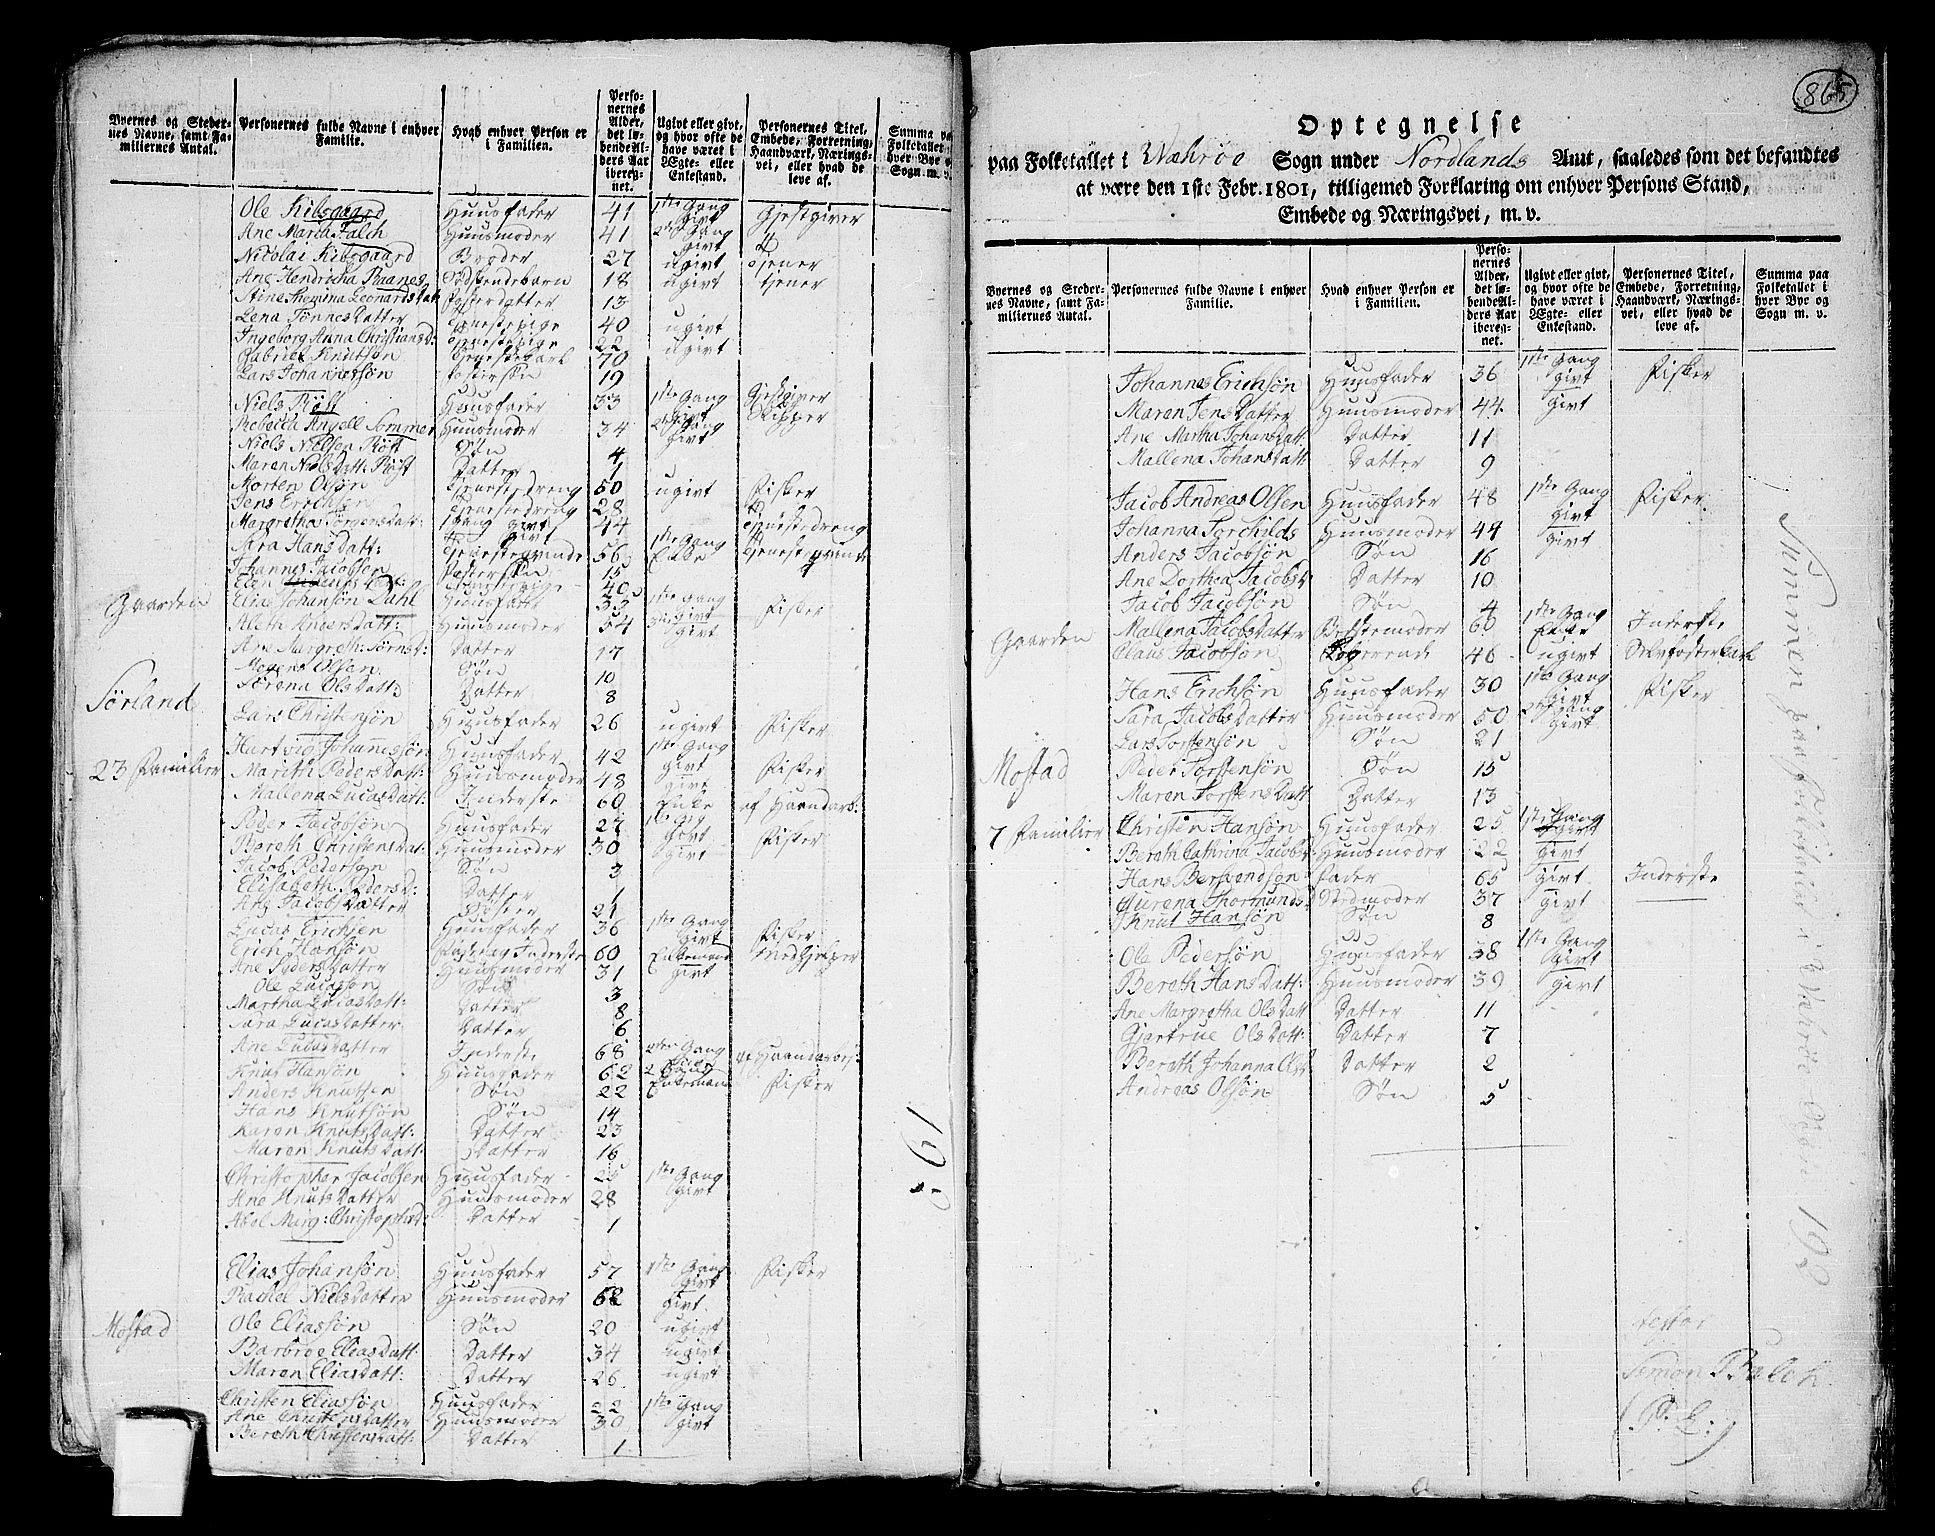 Byernes og Steder-
nes Navne, samt Fa-
miliernes Antal.
Personernes fulde Navne i enhver
Familie.
Hvad enhver Person er
i Familien.
Perso-
nernes
Alder,
det lø-
bende Al-
ders Aar
iberegnet.
Ugivt eller givt,
og hvor ofte de
have været i
Ægte- eller
Enkestand.
Personernes Titel,
Embede, Forretning,
Haandværk, Nærings-
vei, eller hvad de
leve af.
Summa paa
Folketallet i
hver Bye og
Sogn m. v.
Ole Kibsgaard Huusfader 41 1ste Gang givt Gjestgiver
Ane Maria Falch Huusmoder 41 2den Gang givt
Nicolai Kibsgaard Broder 27 ugivt tjener
Ane Hendricha Baanes Sødskendebarn 18 ugivt tjener
Stine Thomina Leonards Datt: Fosterdatter 13
Lena Tønnes Datter Tjenestepige 40 ugivt
Ingeborg Anna Christians D: Tjenestepige 22 ugivt
Gabriel Knutsøn Tjenestekarl 70
Lars Johannessøn Fostersøn 19
Niels Røst Huusfader 33 1ste Gang givt Gjestgiver Skipper
Rebecca Angell Sommer Huusmoder 34 2den Gang givt
Niels Nielsen Røst Søn 4
Maren Niels Datt: Røst Datter 1
Morten Olsøn Tjenestedreng 50 ugivt Fisker
Jens Erichsen Tjenestedreng 28
Margretha Jørgens Datt: 1 Gang givt 44 Tjenestedreng
Sara Hans Datt: Tjenestegvinde 56 1ste Gang Enke Tjenestqvinde
Johannes Jacobsen Fostersøn 15
Elen 40
Gaarden
Elias Johansøn Dahl Huusfader 33 1ste Gang givt Fisker
Aleth Anders Datt: Huusmoder 54 givt
Ane Margreth: Tørris D: Datter 17
Mogens Olsen Søn 10
Sørena Ols Datt: Datter 8
Sørland
Lars Christensøn Huusfader 26 ugivt Fisker
Hartvig Johannessøn Huusfader 42 1ste Gang givt Fisker
23 Familier
Marith Peders Datt: Huusmoder 48 givt
Mallena Lucas Datt: Inderste 60 Enke af Haandarb:
Peder Jacobsøn Huusfader 27 1ste Gang givt Fisker
Bereth Christens Dat: Huusmoder 30 givt
Jacob Pedersøn Søn 3
Elisabeth Peders D: Datter 1
Ane Jacobs Datter Søster 21
Lucas Erichsen Huusfader 36 1ste Gang givt Fisker
Erich Hansøn Inderste 60 Enkemand Medhjelper
Ane Peders Datter Huusmoder 31 givt
Ole Lucassøn Søn 3
Martha Lucas Datt: Datter 8
Sara Lucas Datter Datter 6
Ane Lucas Datter Inderste 68 2den Gang Enke af Haandarbej:
Knut Hansøn Huusfader 62 2 Gang Enkemand Fisker
Anders Knutsen Søn 22
Hans Knutsøn Søn 14
Karen Knuts Datt: Datter 23
Maren Knuts Datt: Datter 16
Christopher Jacobsen Huusfader 25 1ste Gang givt
Ane Knuts Datter Huusmoder 28
Abel Marg: Christophs D: Datter 1
Elias Johansøn Huusfader 57 1ste Gang givt Fisker
Rachel Niels Datter Huusmoder 62 givt
Mostad
Ole Eliassøn Søn 20 ugivt
Barbroe Elias Datt Datter 34 ugivt
Maren Elias Datt: Datter 26 ugivt
Christen Eliassøn Huusfader 22 1ste Gang givt
Ane Christens Datter Huusmoder 30
Bereth Christens Datt: Datter 1
561
865
Optegnelse
paa Folketallet i Wæhrøe Sogn under Nordlands Amt, saaledes som det befandtes
at være den 1ste Febr. 1801, tilligemed Forklaring om enhver Persons Stand,
Embede og Næringsvei, m. v.
Byernes og Steder-
nes Navne, samt Fa-
miliernes Antal.
Personernes fulde Navne i enhver
Familie.
Hvad enhver Person er
i Familien.
Perso-
nernes
Alder,
det lø-
bende Al-
ders Aar
iberegnet.
Ugivt eller givt,
og hvor ofte de
have været i
Ægte- eller
Enkestand.
Personernes Titel,
Embede, Forretning,
Haandværk, Nærings-
vei, eller hvad de
leve af.
Summa paa
Folketallet i
hver Bye og
Sogn m. v.
Johannes Erichsøn Huusfader 36 1ste Gang givt Fisker
Maren Jens Datter Huusmoder 44 givt
Ane Martha Johans Datt: Datter 11
Mallena Johans Datt: Datter 9
Jacob Andreas Olsen Huusfader 48 1ste Gang givt Fisker
Johanna Torchilds Huusmoder 44 givt
Anders Jacobsøn Søn 16
Ane Dorthea Jacobs D: Datter 10
Jacob Jacobsøn Søn 4
Gaarden
Mallena Jacobs Datter Bedstemoder 60 1ste Gang Enke Inderste
Claus Jacobsøn Logerende 46 ugivt Selvfosterkarl
Hans Erichsøn Huusfader 30 1ste Gang givt Fisker
Sara Jacobs Datter Huusmoder 50 2den Gang givt
Lars Torstensøn Søn 21
Mostad
Peder Torstensøn Søn 15
Maren Torstens Datt Datter 13
7 Familier
Christen Hansøn Huusfader 25 1ste Gang givt
Bereth Cathrina Jacobs D: Huusmoder 22 givt
Hans Bersvendsøn Fader 65 givt Inderste
Gurena Thormunds D Stedmoder 37 givt
Knut Hansøn Søn 8
Ole Pedersøn Huusfader 38 1ste Gang givt
Bereth Hans Datt: Huusmoder 39 givt
Ane Margretha Ols Datt Datter 11
Gjertrue Ols Datt: Datter 7
Bereth Johanna Ols D Datter 2
Andreas Olsøn Søn 5
Summen paa Folketallet i Wæhrøe Sogn 198
testor
Simon Balch
(P. L:)